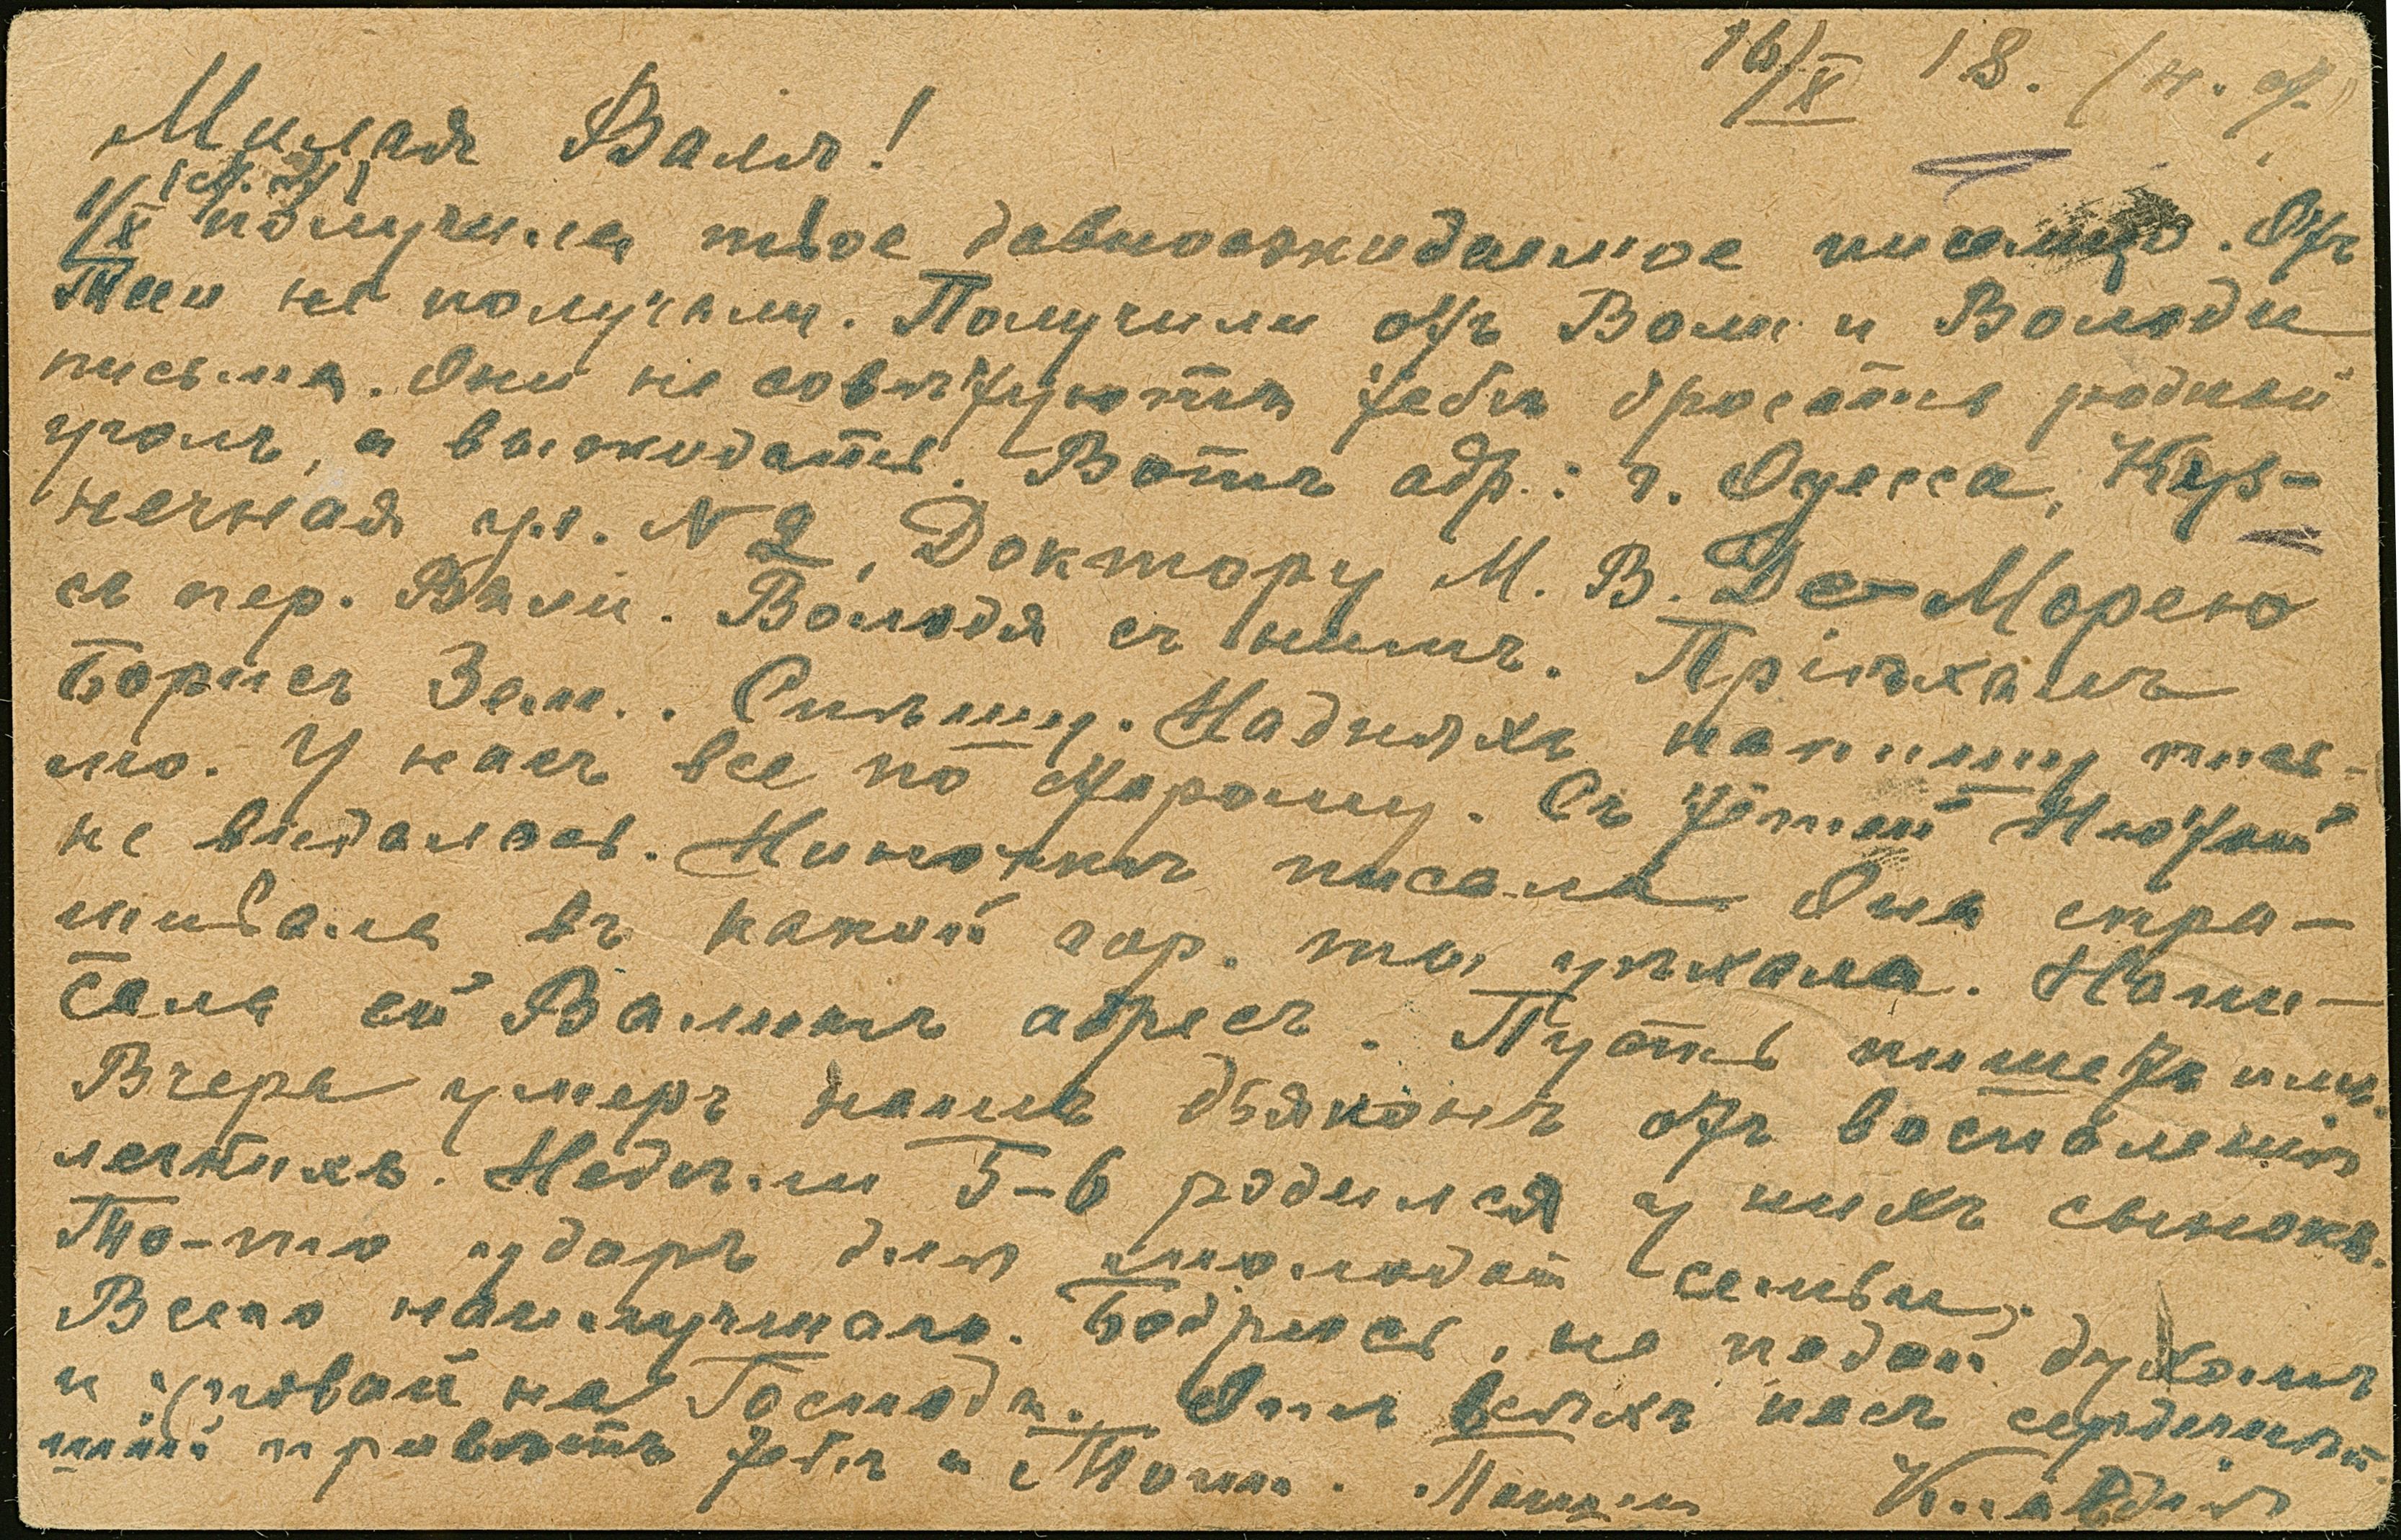 16/X 18. (н. ст.)
Милая Валя!
(ст. ст.)
1/X получила твое давноожидаемое письмо. Отъ
Таси не получали. Получили отъ Воли и Володи
письма. Они не совѣтуютъ тебѣ бросать родной
уголъ, а выжидать. Вотъ адр.: г. Одесса, Куз-
нечная ул. № 2, Доктору М. В. Де-Морею
съ пер. Вали. Володя съ нимъ. Пріѣхалъ
Борисъ Зем.. Спѣшу. Надняхъ напишу пись-
мо. У насъ все по старому. Съ тётей Нютой
не видалась. Ниночкѣ писала. Она спра-
шивала въ какой гор. ты уѣхала. Напи-
сала ей Валинъ адресъ. Пусть пишетъ имъ.
Вчера умеръ нашъ дьяконъ отъ воспаленія
легкихъ. Недѣли 5-6 родился у нихъ сынокъ.
То-то ударъ для молодой семьи.
Всего наилучшаго. Бодрись, не падай духомъ
и уповай на Господа. Отъ всѣхъ насъ сердечнѣй-
шій привѣтъ тебѣ и Тоши. Клавдія